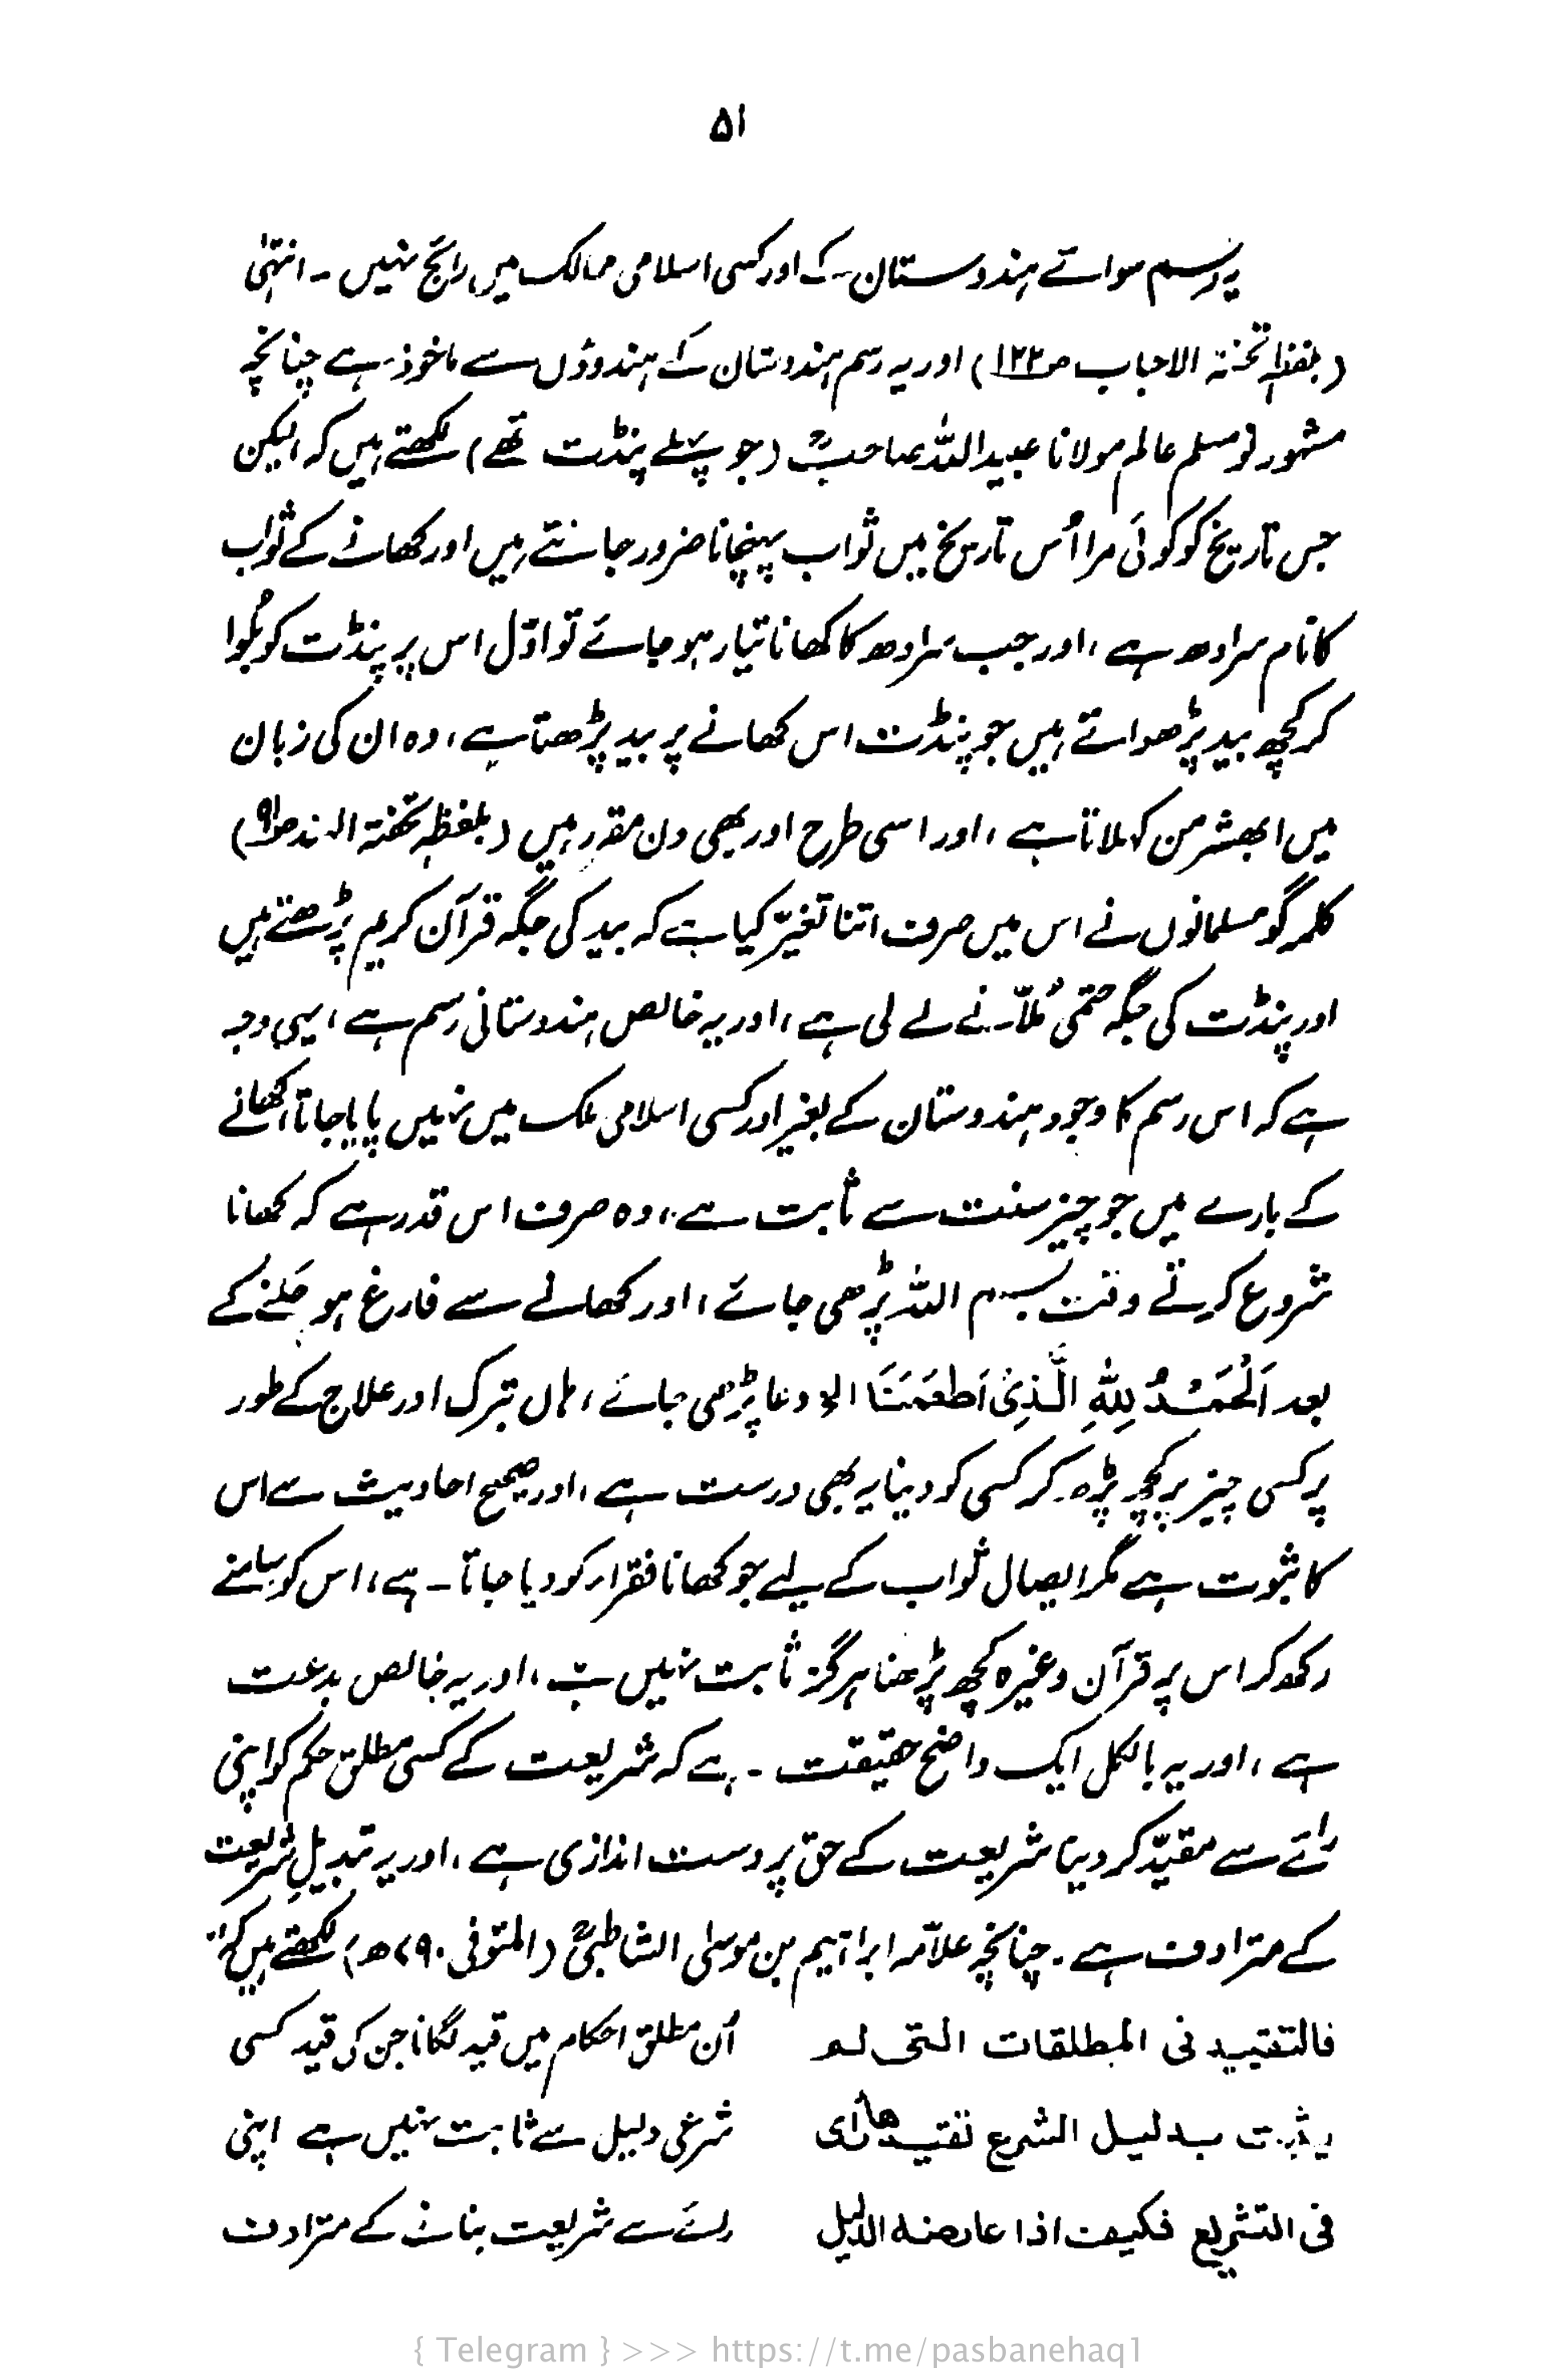 ۵۱
یہ رسم سوائے ہندوستان کے اور کسی اسلامی ممالک میں رائج نہیں ۔ انتہیٰ
(بلفظہٖ تحفۃ الاحباب ص۱۲۲) اور یہ رسم ہندوستان کے ہندوؤں سے ماخوذ ہے چنانچہ
مشہور نو مسلم عالم مولانا عبیداللہ صاحبؒ (جو پہلے پنڈت تھے) لکھتے ہیں کہ لیکن
جس تاریخ کو کوئی مرا اُس تاریخ میں ثواب پہنچانا ضرور جانتے ہیں اور کھانے کے ثواب
کا نام سرادھ ہے ، اور جب سرادھ کا کھانا تیار ہو جائے تو اوّل اس پر پنڈت کو بُلوا
کر کچھ بید پڑھواتے ہیں جو پنڈت اس کھانے پر بید پڑھتا ہے ، وہ ان کی زبان
میں ابھشرمن کہلاتا ہے ، اور اسی طرح اور بھی دن مقرر ہیں (بلفظہٖ تحفۃ الہند ص۹۱)
کلمہ گو مسلمانوں نے اس میں صرف اتنا تغیّر کیا ہے کہ بید کی جگہ قرآن کریم پڑھتے ہیں
اور پنڈت کی جگہ ختمی مُلّا نے لے لی ہے ، اور یہ خالص ہندوستانی رسم ہے ، یہی وجہ
ہے کہ اس رسم کا وجود ہندوستان کے بغیر اور کسی اسلامی ملک میں نہیں پایا جاتا ، کھانے
کے بارے میں جو چیز سنت سے ثابت ہے ، وہ صرف اس قدر ہے کہ کھانا
شروع کرتے وقت بسم اللہ پڑھی جائے ، اور کھانے سے فارغ ہو جانے کے
بعد اَلْحَمْدُ لِلّٰہِ الَّذِیْ اَطْعَمَنَا الخ دعا پڑھی جائے ، ہاں تبرک اور علاج کے طور
پر کسی چیز پر کچھ پڑھ کر کسی کو دینا یہ بھی درست ہے ، اور صحیح احادیث سے اس
کا ثبوت ہے مگر ایصال ثواب کے لیے جو کھانا فقراء کو دیا جاتا ہے ، اس کو سامنے
رکھ کر اس پر قرآن وغیرہ کچھ پڑھنا ہرگز ثابت نہیں ہے ، اور یہ خالص بدعت
ہے ، اور یہ بالکل ایک واضح حقیقت ہے کہ شریعت کے کسی مطلق حکم کو اپنی
رائے سے مقیّد کر دینا شریعت کے حق پر دست اندازی ہے ، اور یہ تبدیلِ شریعت
کے مترادف ہے ۔ چنانچہ علاّمہ ابراہیم بن موسیٰ الشاطبیؒ (المتوفی ۷۹۰ھ) لکھتے ہیں کہ:
فالتقیید فی المطلقات التی لم
یثبت بدلیل الشرع تقییدھا رأی
فی التشریع فکیف اذا عارضہ الدلیل
اُن مطلق احکام میں قید لگانا جن کی قید کسی
شرعی دلیل سے ثابت نہیں ہے اپنی
رائے سے شریعت بنانے کے مترادف
{ Telegram } >>> https://t.me/pasbanehaq1